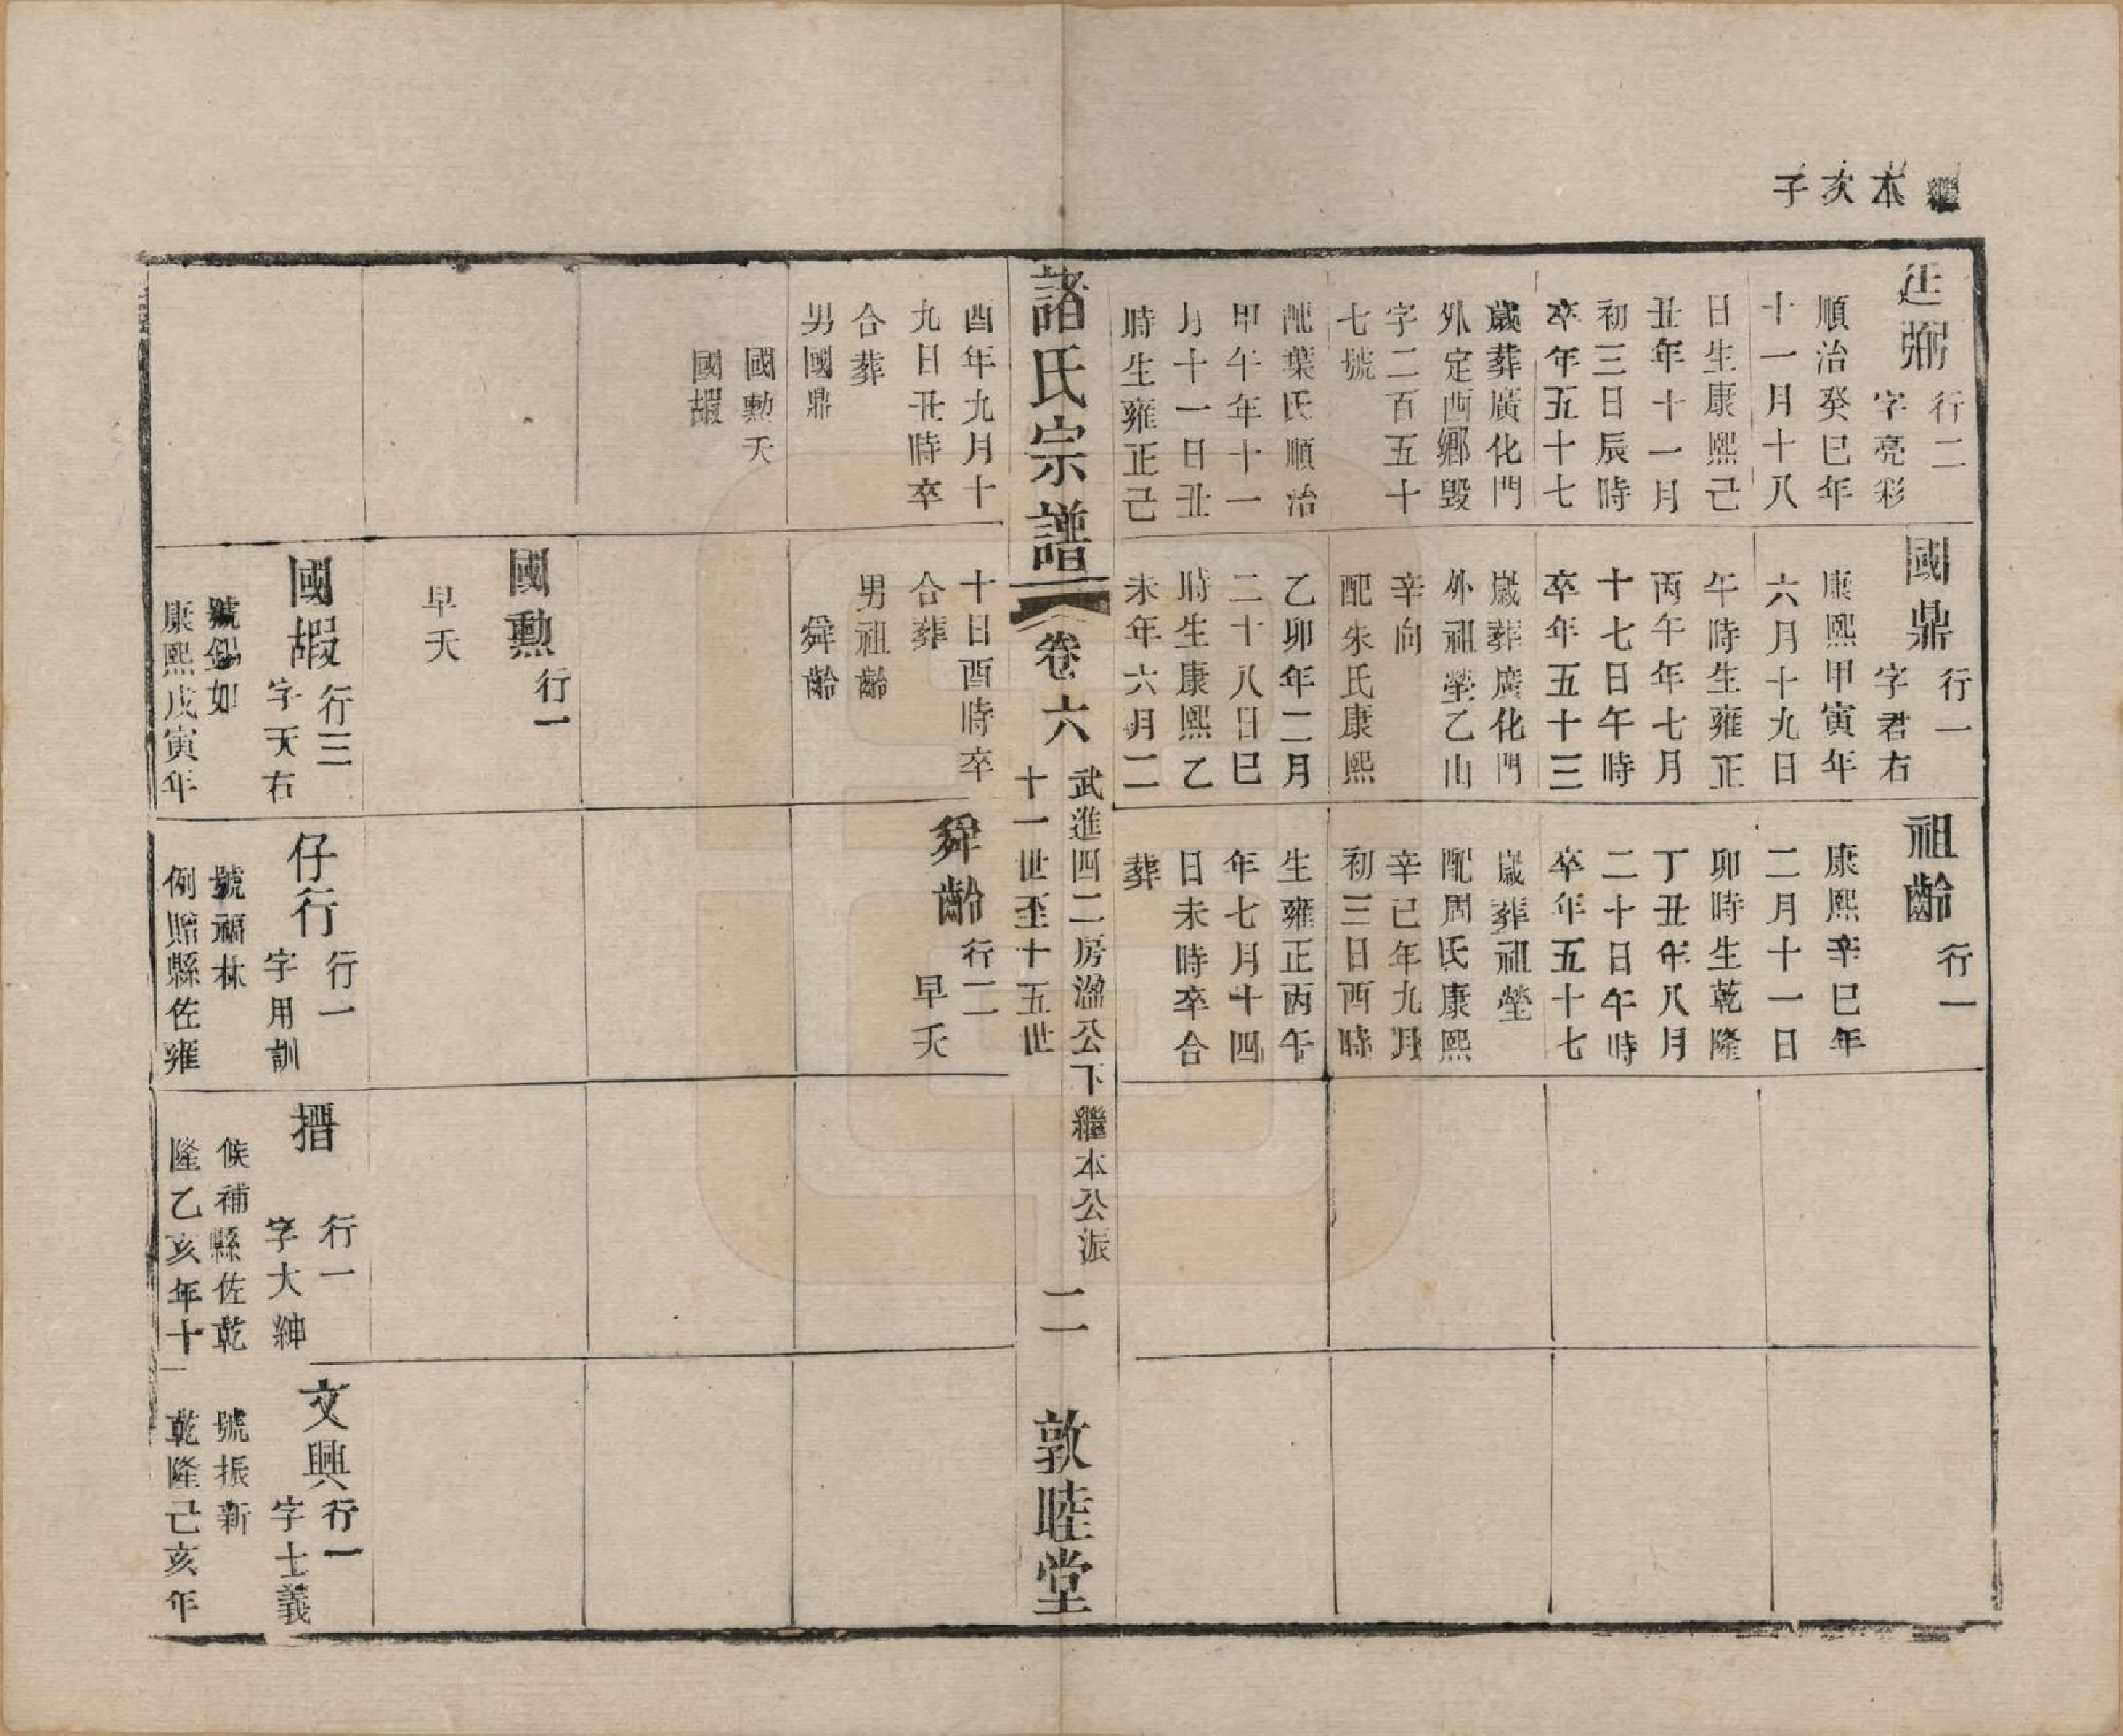 繼本次子
廷弼 行二
字亮彩
順治癸巳年
十一月十八
日生康熙己
丑年十一月
初三日辰時
卒年五十七
歲葬廣化門
外定西鄉毀
字二百五十
七號
配葉氏順治
甲午年十一
月十一日丑
時生雍正己
酉年九月十
九日丑時卒
合葬
男國鼎
國勲夭
國嘏
國鼎 行一
字君右
康熙甲寅年
六月十九日
午時生雍正
丙午年七月
十七日午時
卒年五十三
歲葬廣化門
外祖塋乙山
辛向
配朱氏康熙
乙卯年二月
二十八日巳
時生康熙乙
未年六月二
十日酉時卒
合葬
男祖齡
舜齡
國勲 行一
早夭
國嘏 行三
字天右
號錫如
康熙戊寅年
祖齡 行一
康熙辛巳年
二月十一日
卯時生乾隆
丁丑年八月
二十日午時
卒年五十七
歲葬祖塋
配周氏康熙
辛巳年九月
初三日酉時
生雍正丙午
年七月十四
日未時卒合
葬
舜齡 行二
早夭
仔行 行一
字用訓
號福林
例贈縣佐雍
搢 行一
字大紳
候補縣佐乾
隆乙亥年十
文興 行一
字士義
號振新
乾隆己亥年
諸氏宗譜
卷六
武進四二房溋公下繼本公派
十一世至十五世
二
敦睦堂